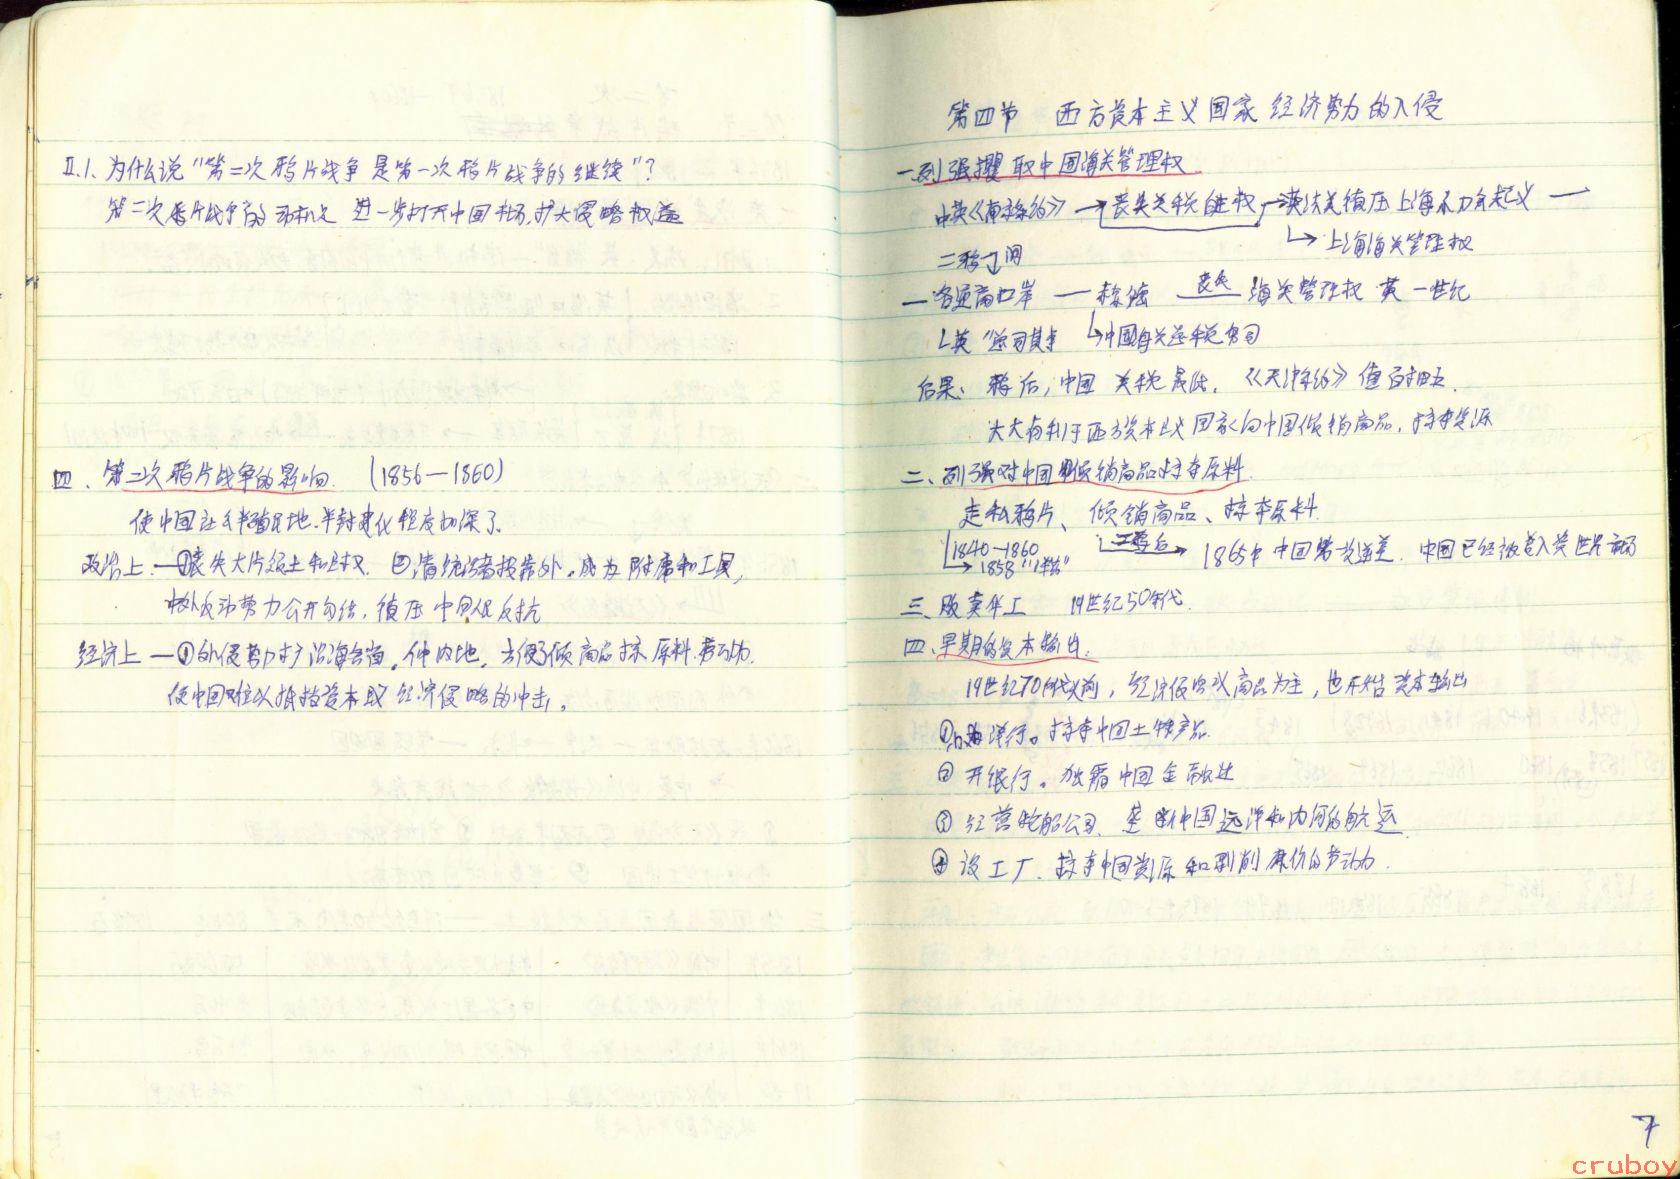 Ⅱ.1. 为什么说"第二次鸦片战争是第一次鸦片战争的继续"?
第二次鸦片战争的动机 进一步打开中国市场,扩大侵略权益
四、第二次鸦片战争的影响. (1856—1860)
使中国社会半殖民地、半封建化程度加深了.
政治上.—①丧失大片领土和主权. ②清统治者投靠外。成为附庸和工具,
中外反动势力公开勾结,镇压中国人民反抗
经济上—①外侵势力扩沿海各省。伸内地。方便了倾商品掠原料.劳动力.
使中国难以抵挡资本主义经济侵略的冲击。
第四节 西方资本主义国家经济势力的入侵
一.列强攫取中国海关管理权
中英《南京条约》→丧失关税自主权→英法美镇压上海小刀会起义—
→上海海关管理权
二鸦期间
—各通商口岸— 丧失 海关管理权 英 世纪
英"总司 →中国海关总税务司
后果: 鸦后,中国关税最低.《天津条约》值百抽五.
大大有利于西方资本主义国家向中国倾销商品,掠夺资源
二、列强对中国倾销商品掠夺原料.
走私鸦片、倾销商品、掠夺原料.
1840—1860
→1858"洋药"
→1865年中国第一次逆差.中国已经被卷入资世界市场
三.贩卖华工 19世纪50年代.
四.早期的资本输出.
19世纪70年代以前,经济侵略以商品为主,也开始资本输出
① 洋行。掠夺中国土特产品.
②开银行。独霸中国金融业
③经营轮船公司、垄断中国远洋和内河的航运
④设工厂、掠夺中国资源和剥削廉价的劳动力.
7
cruboy